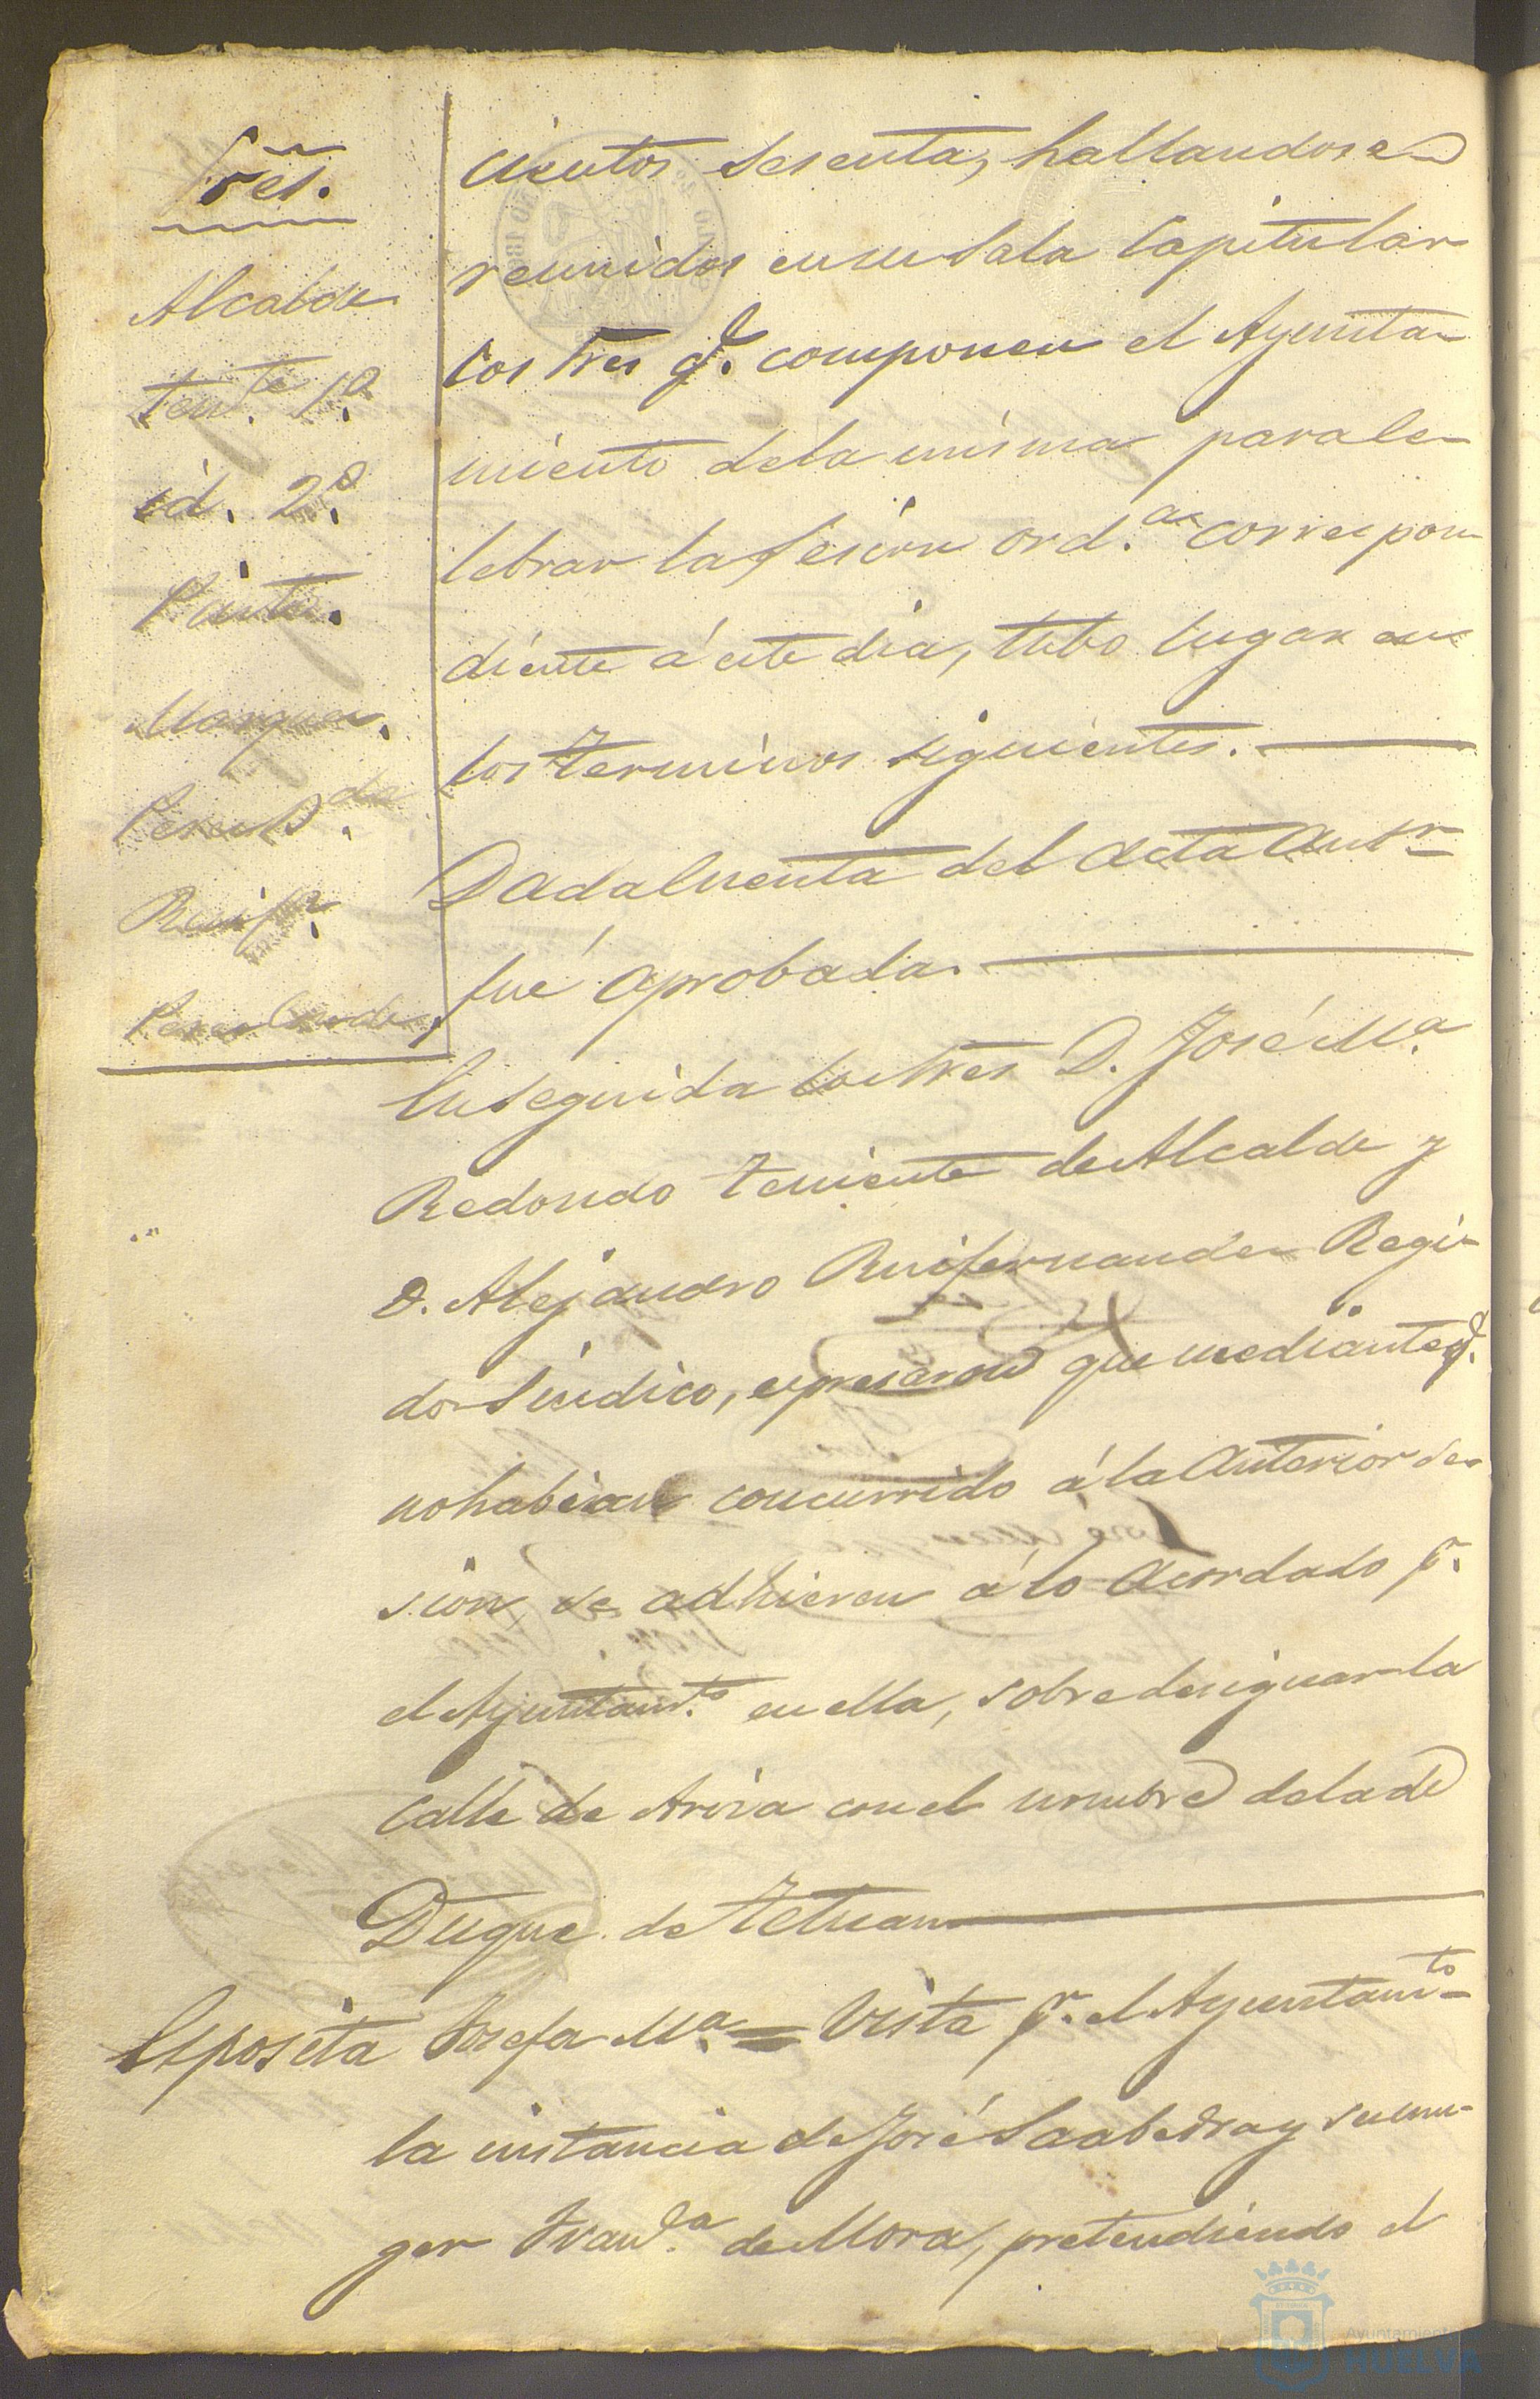 Sres.
Alcalde
Tente. 1º
id. 2º
Marquez.
Ruifz.
cientos sesenta, hallandose
reunidos en su Sala Capitular
los Sres q.e componen el Ayunta-
miento de la misma para ce-
lebrar la Sesion ord.a correspon-
diente á este dia, tubo lugar en
los terminos siguientes.
Dada Cuenta del acta antr
fué aprobada.
En seguida los Sres D. José M.a
Redondo teniente de Alcalde y
D. Alejandro Ruifernandez Regi-
dor Sindico, expresaron que mediante q.e
no habian concurrido á la anterior se-
sion, se adhieren á lo acordado p.r
el Ayuntam.to en ella, sobre designar la
calle de Arriva con el nombre de la de
Duque de Tetuan
Exposita Josefa M.a = Vista p.r el Ayuntam.to
la instancia de José Saabedra y su mu-
ger Fran.ca de Mora, pretendiendo el
Ayuntamiento
HUELVA